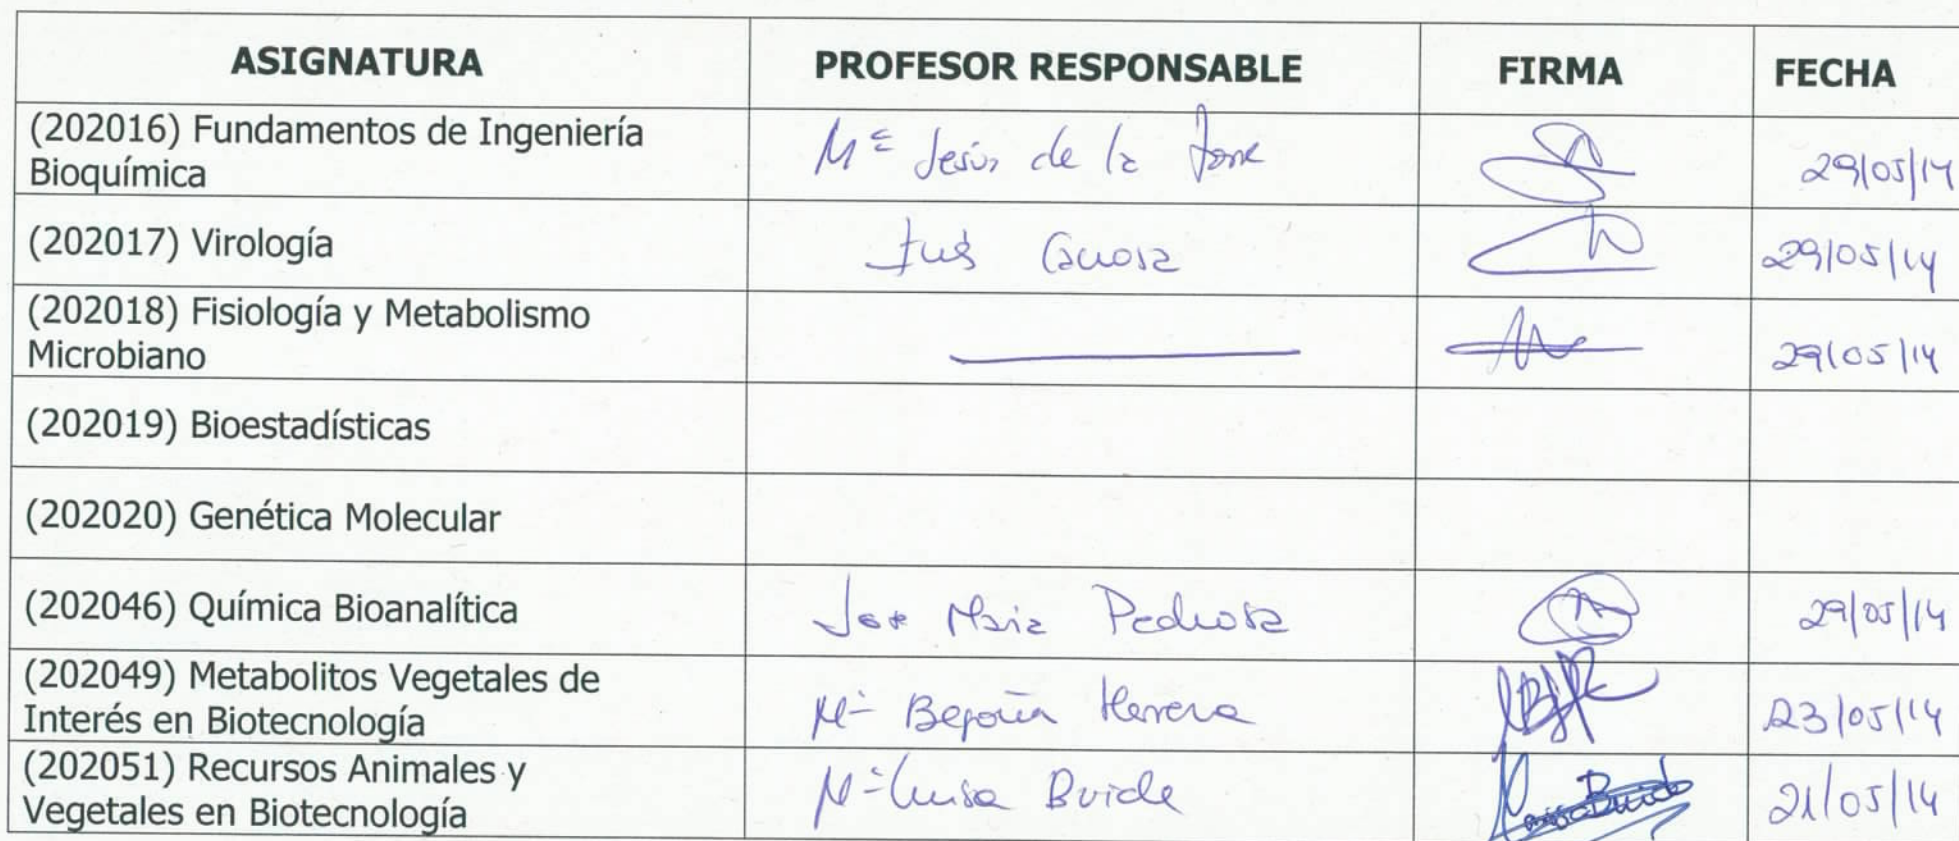 ASIGNATURA PROFESOR RESPONSABLE FIRMA FECHA
(202016) Fundamentos de Ingeniería
Bioquímica
Mª Jesús de la 29/05/14
(202017) Virología 29/05/14
(202018) Fisiología y Metabolismo
Microbiano
29/05/14
(202019) Bioestadísticas
(202020) Genética Molecular
(202046) Química Bioanalítica Jose Maria Pedrosa 29/05/14
(202049) Metabolitos Vegetales de
Interés en Biotecnología
Mª Begoña Herrera 23/05/14
(202051) Recursos Animales y
Vegetales en Biotecnología
Mª Luisa Buide 21/05/14